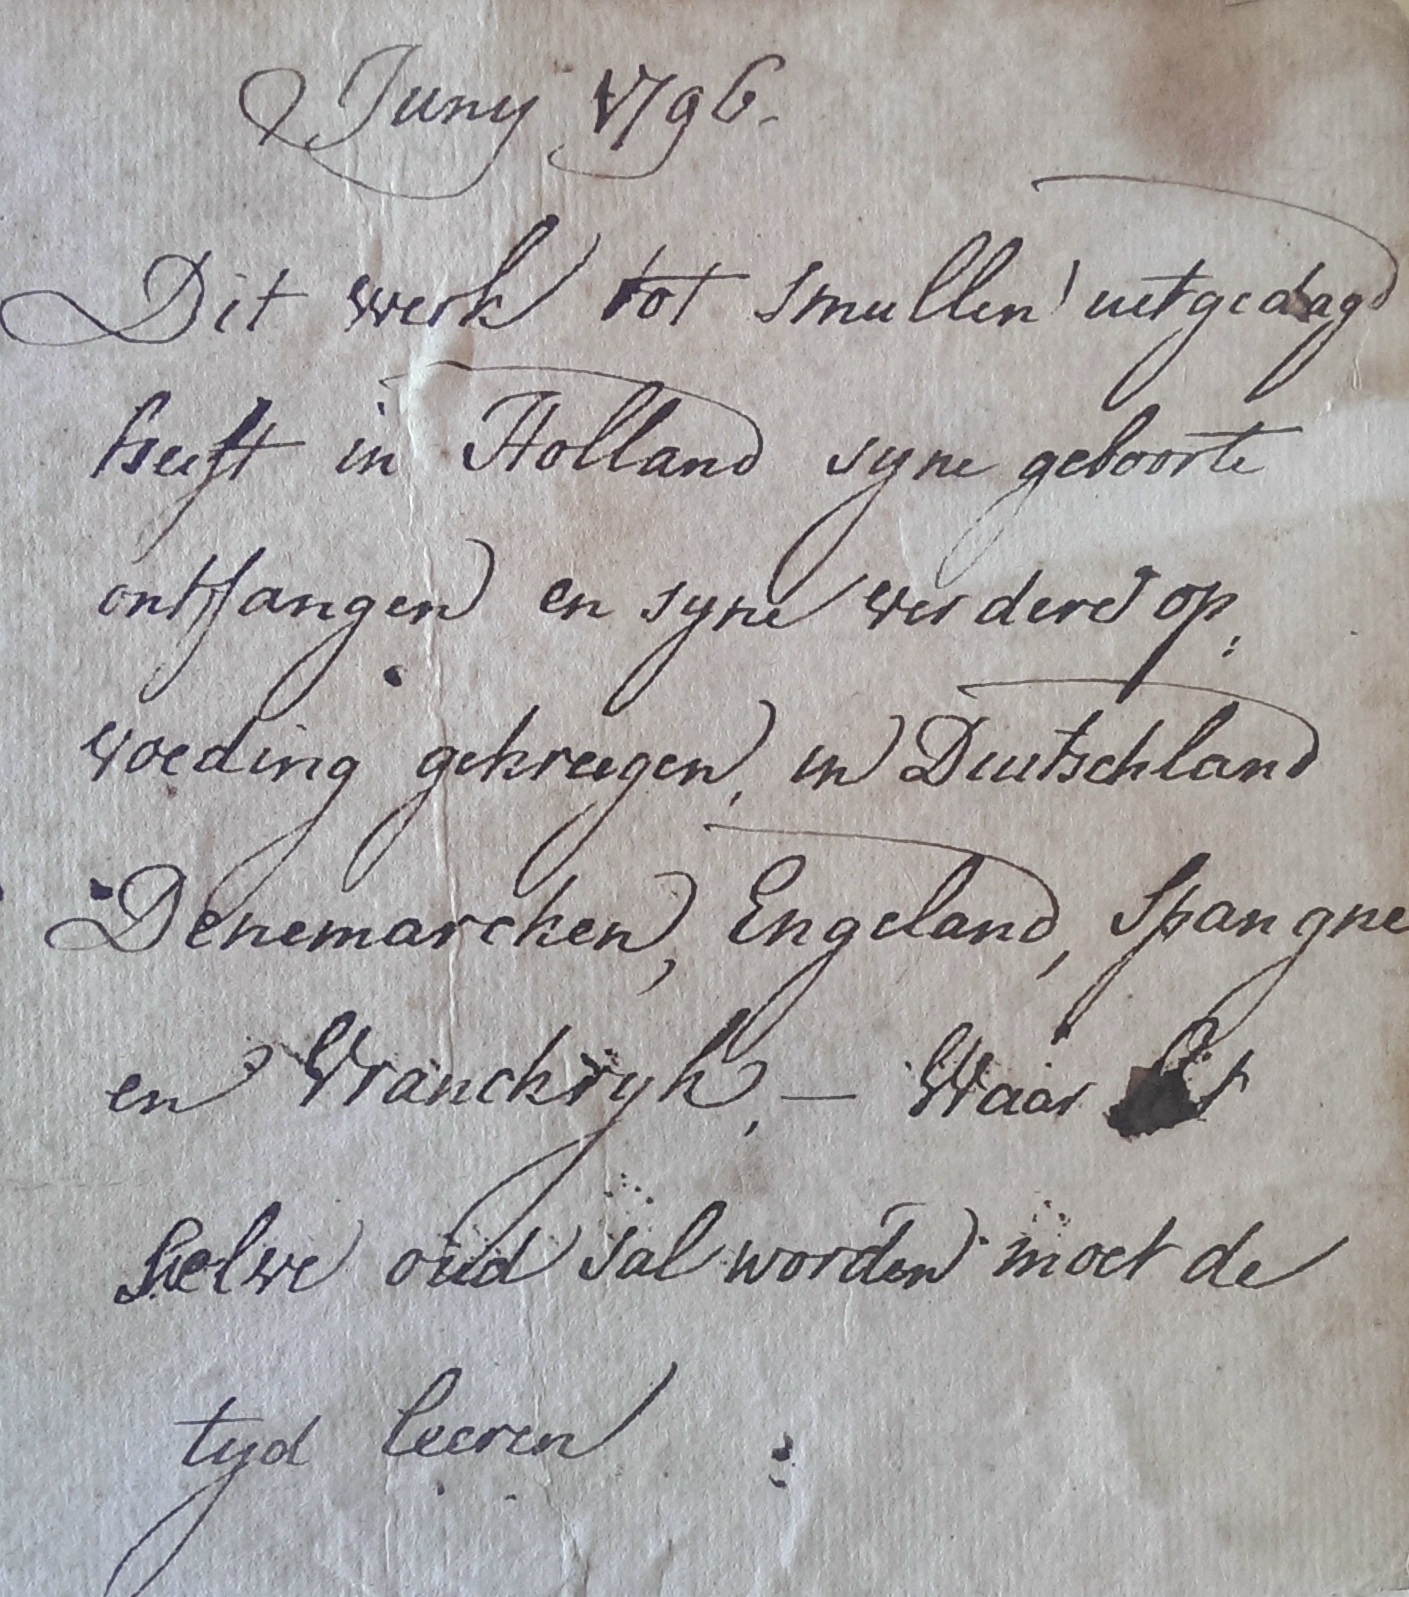 Juny 1796.
Dit werk tot smullen uitgedagd
heeft in Holland syne geboorte
ontfangen en syne verdere op:
voeding gekreegen, in Duitschland
Denemarcken, Engeland, Spangne
en Vranckryk, — Waar
selve oud sal worden moet de
tyd leeren :